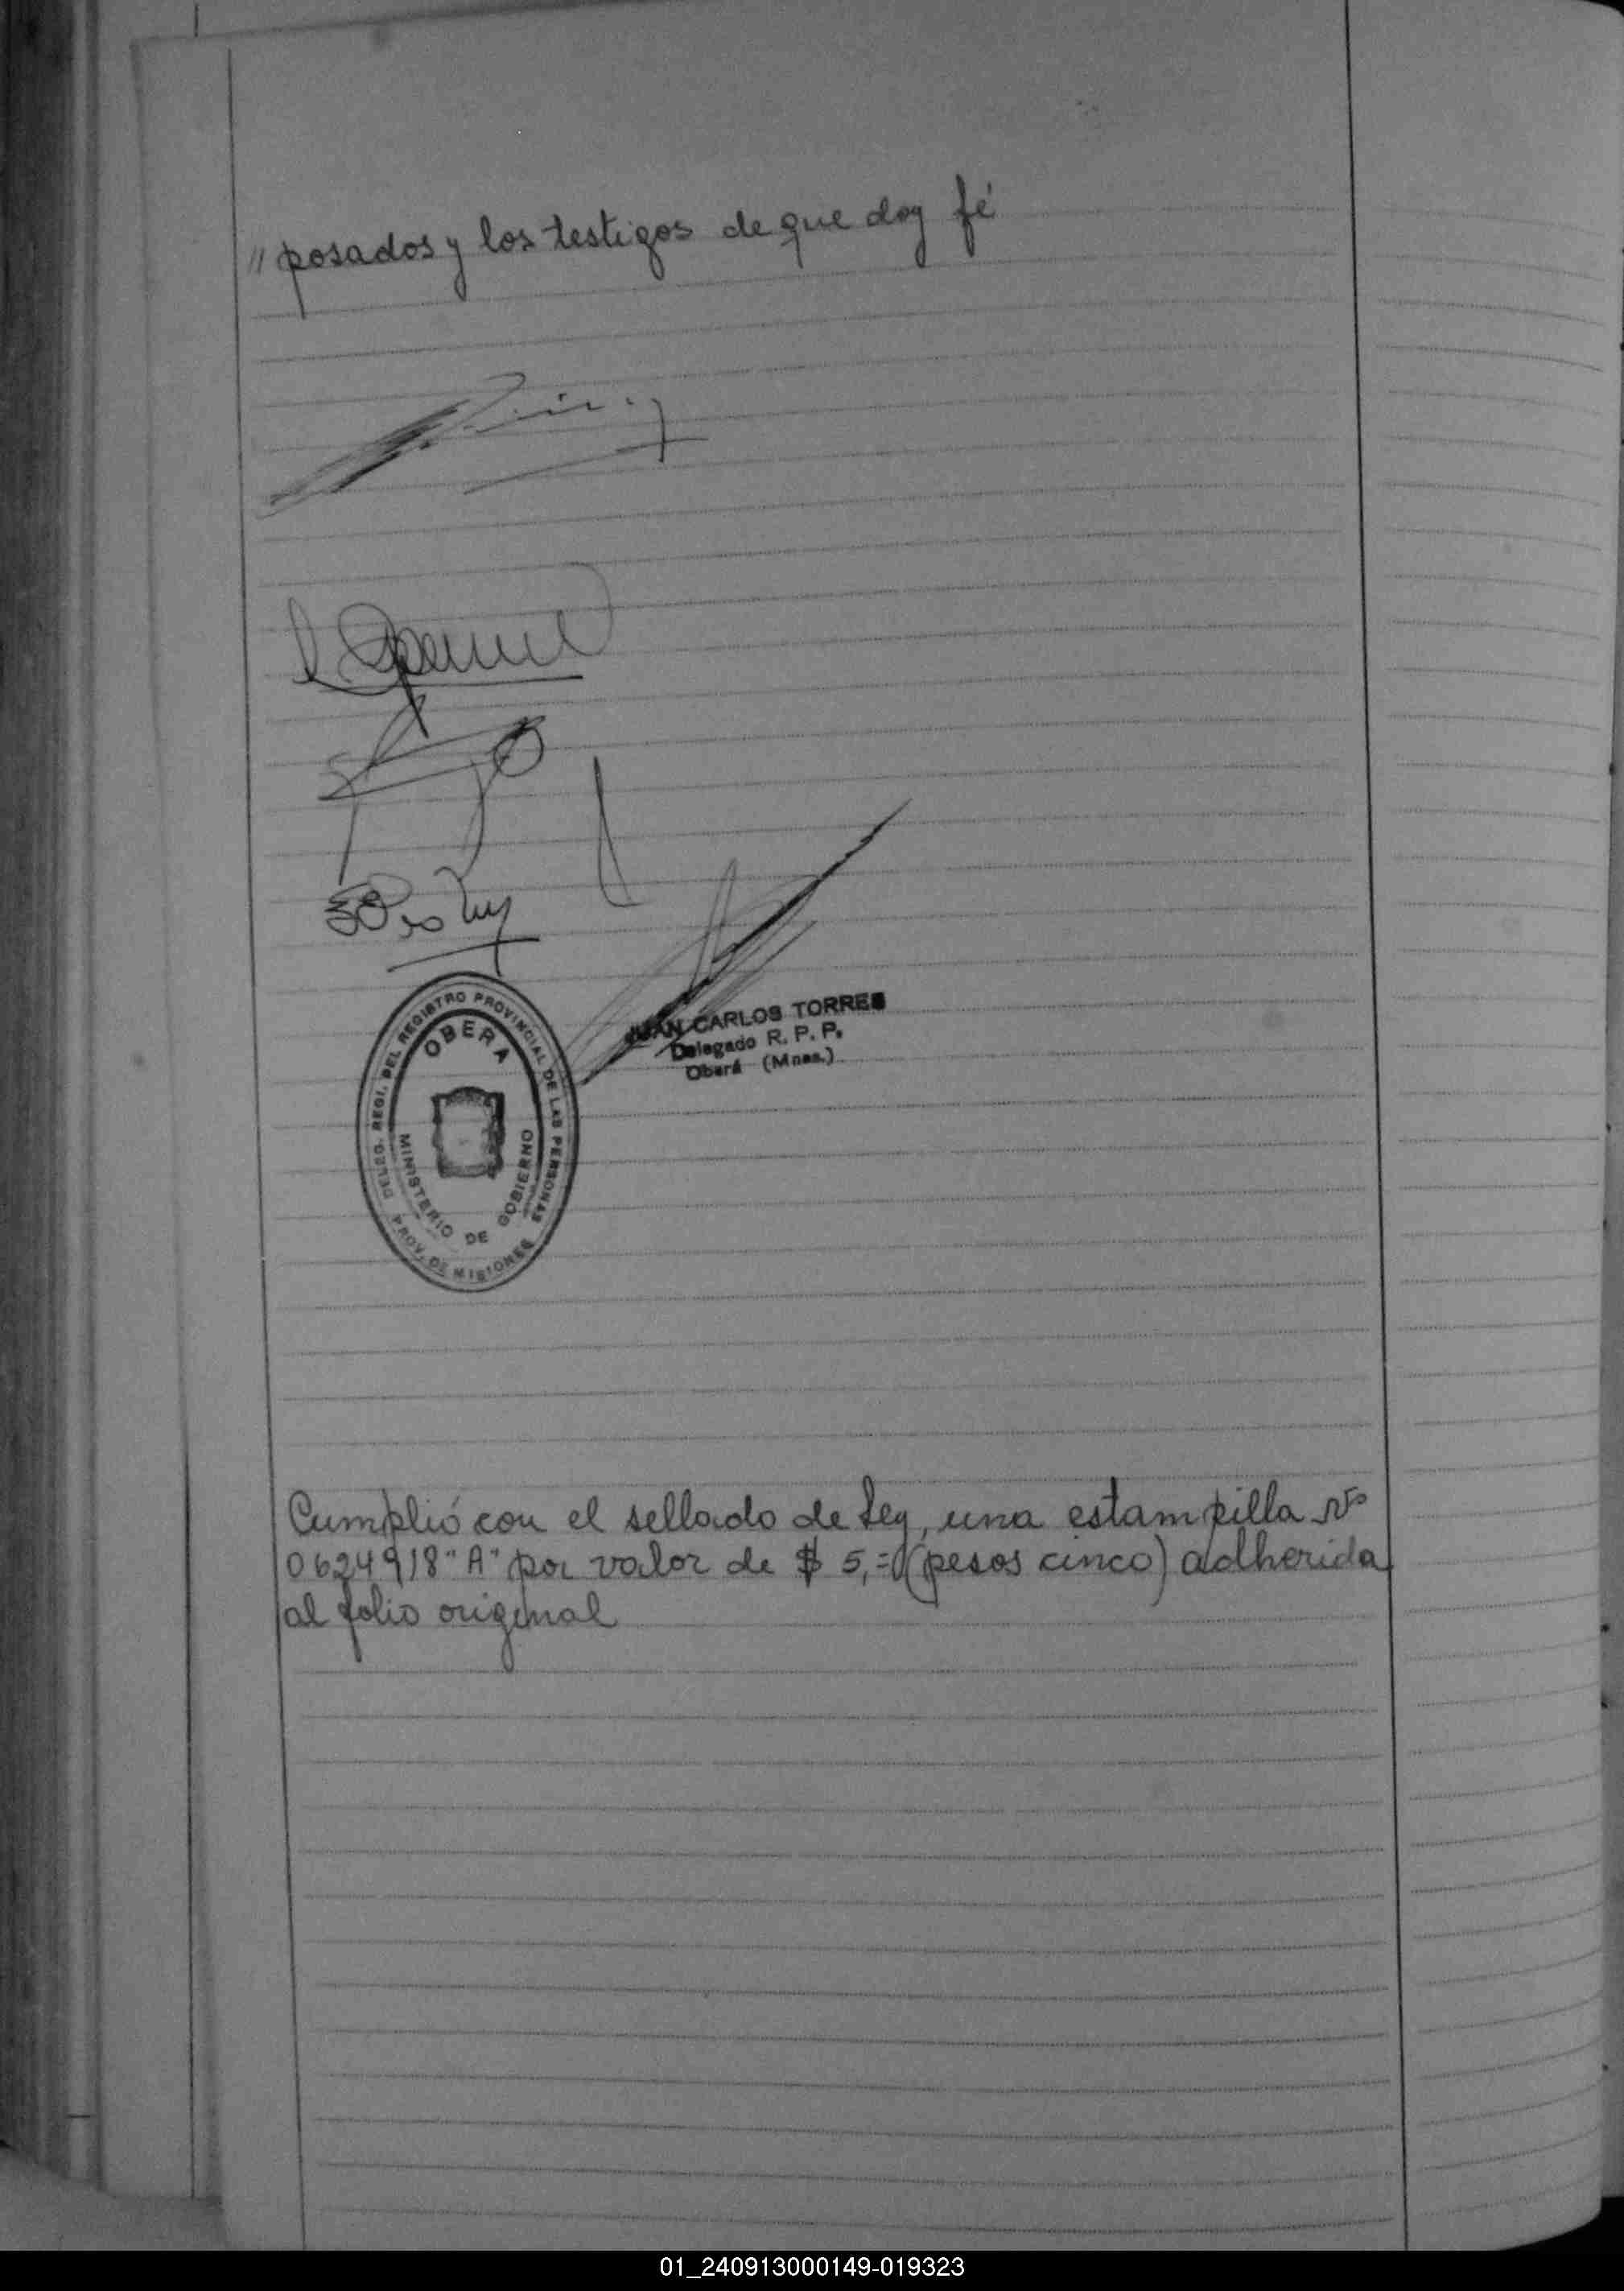 "posados y los testigos de que doy fé
JUAN CARLOS TORRES
Delegado R. P. P.
Oberá (Mnes.)
DELEG. REGI. DEL REGISTRO PROVINCIAL DE LAS PERSONAS
OBERA
MINISTERIO DE GOBIERNO
PROV. DE MISIONES
Cumplió con el sellado de Ley, una estampilla Nº
0624918 "A" por valor de $ 5,= (pesos cinco) adherida
al folio original
01_240913000149-019323